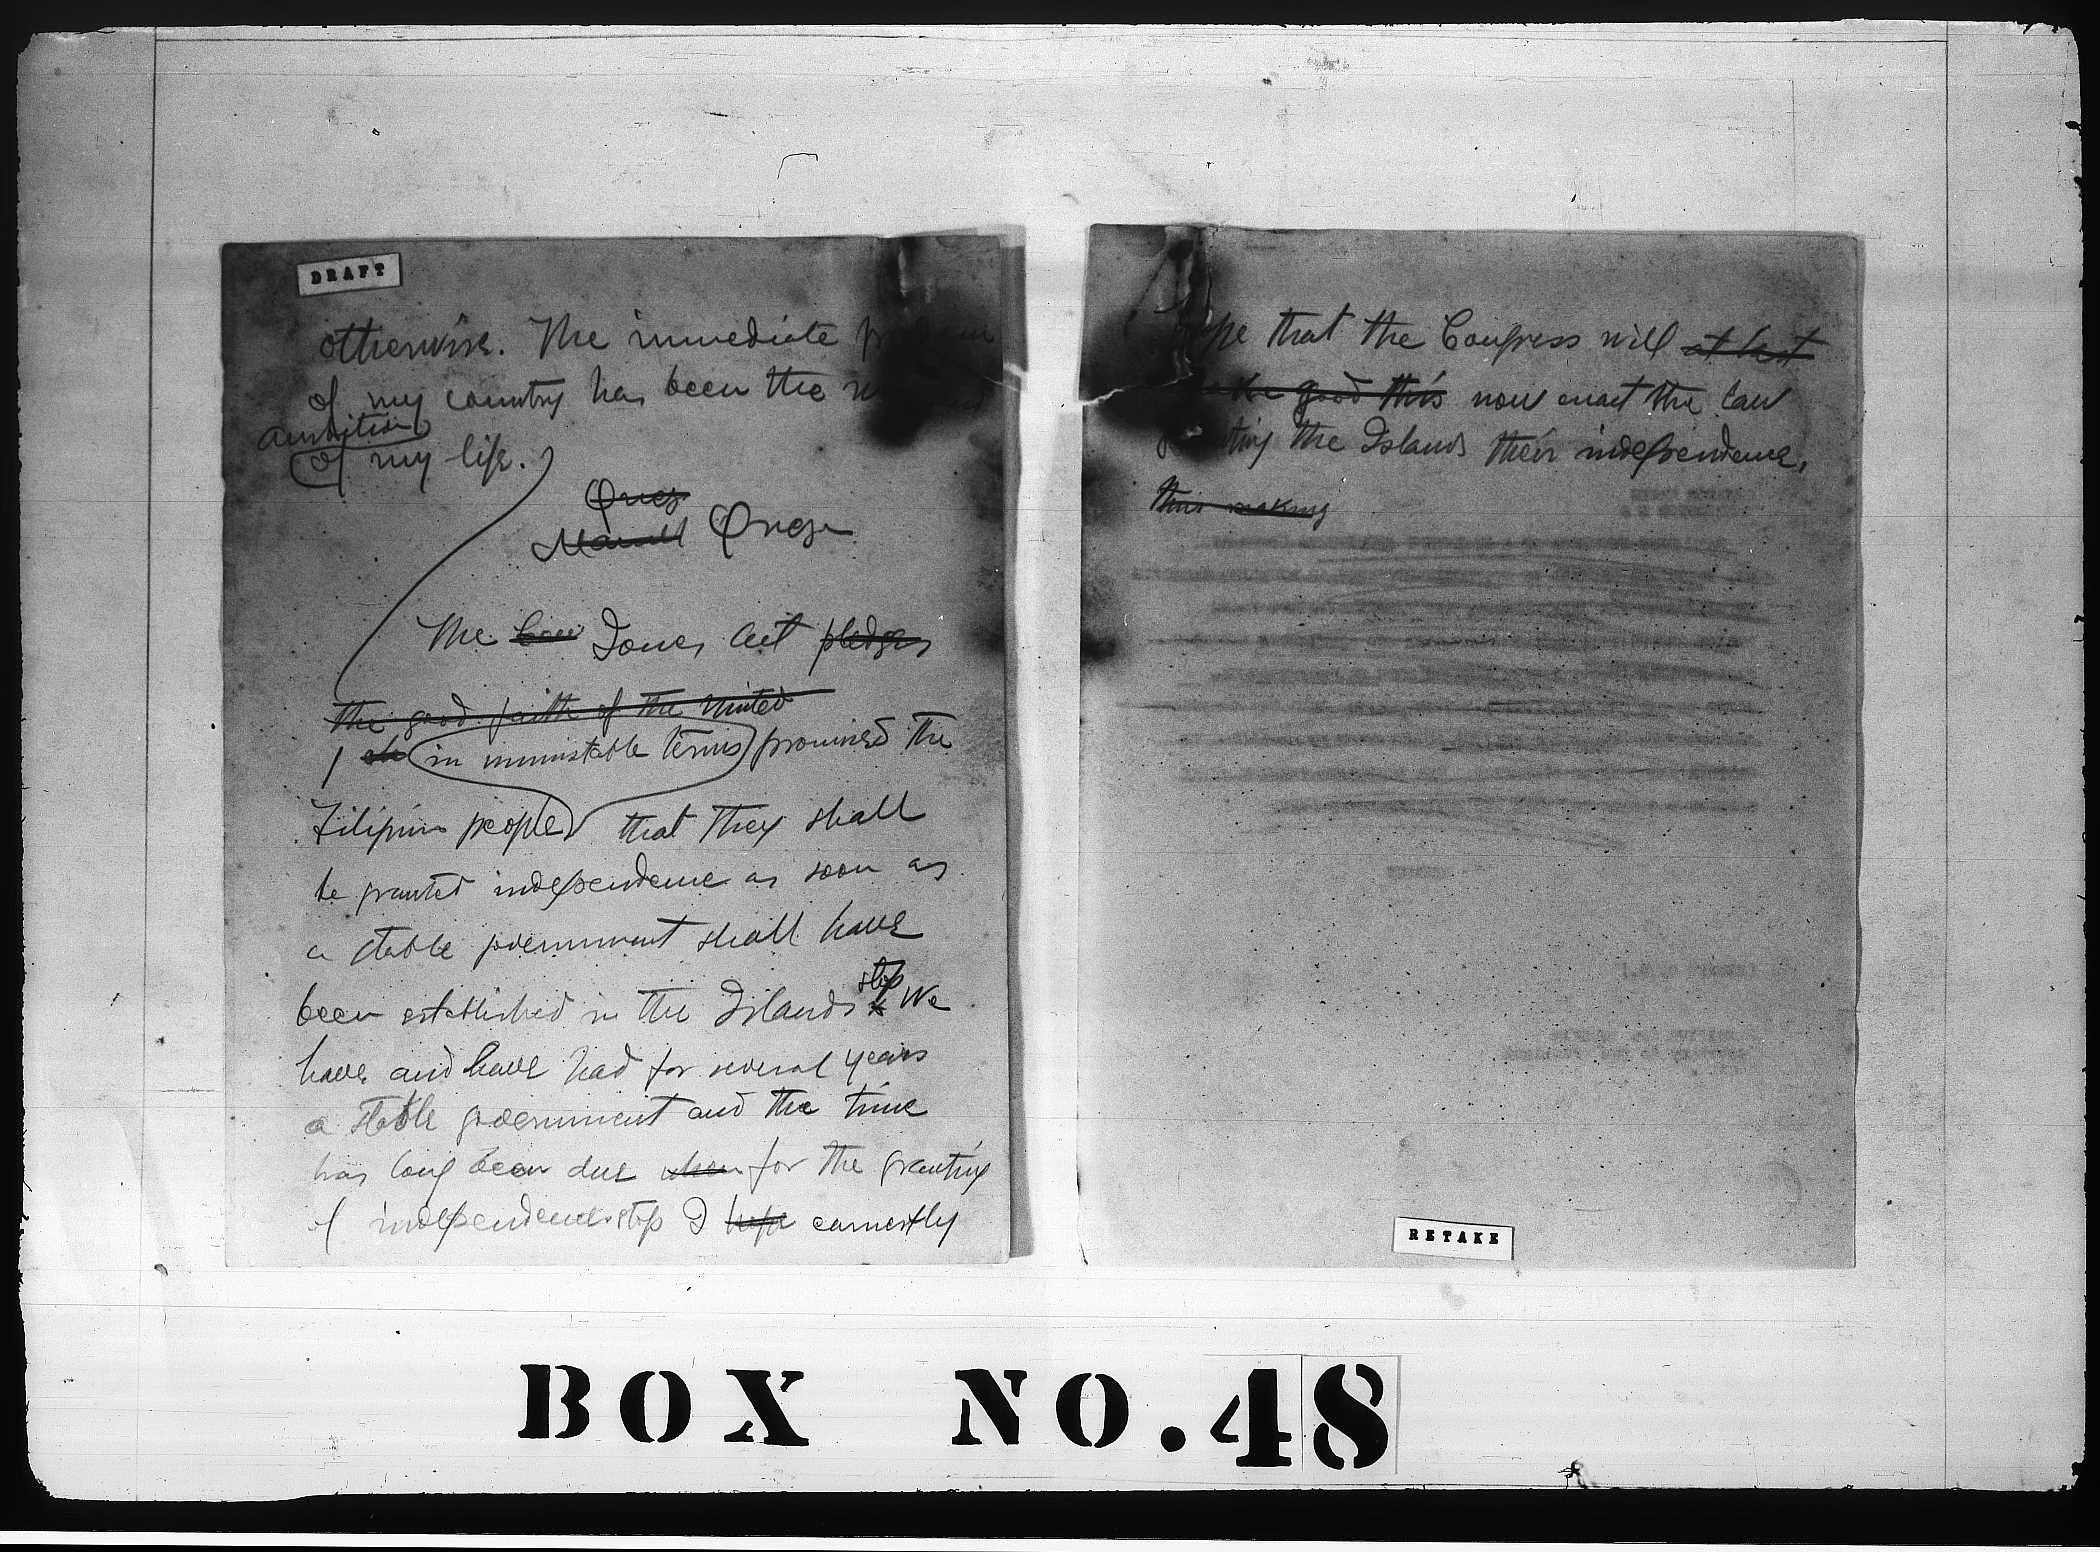 DRAFT
otherwise. The immediate
of my country has been the
ambition
of my life.
Quezon
Manuel Quezon
The Jones Act pledges
the good faith of the United
in unmistable terms promised the
Filipino people that they shall
be granted independence as soon as
a stable government shall have
been established in the Islands stop We
have and have had for several years
a stable government and the time
has long been due when for the granting
of independence. stop I hope earnestly
hope that the Congress will at last
good this now enact the law
granting the Islands their independence.
thus making
RETAKE
BOX NO.48